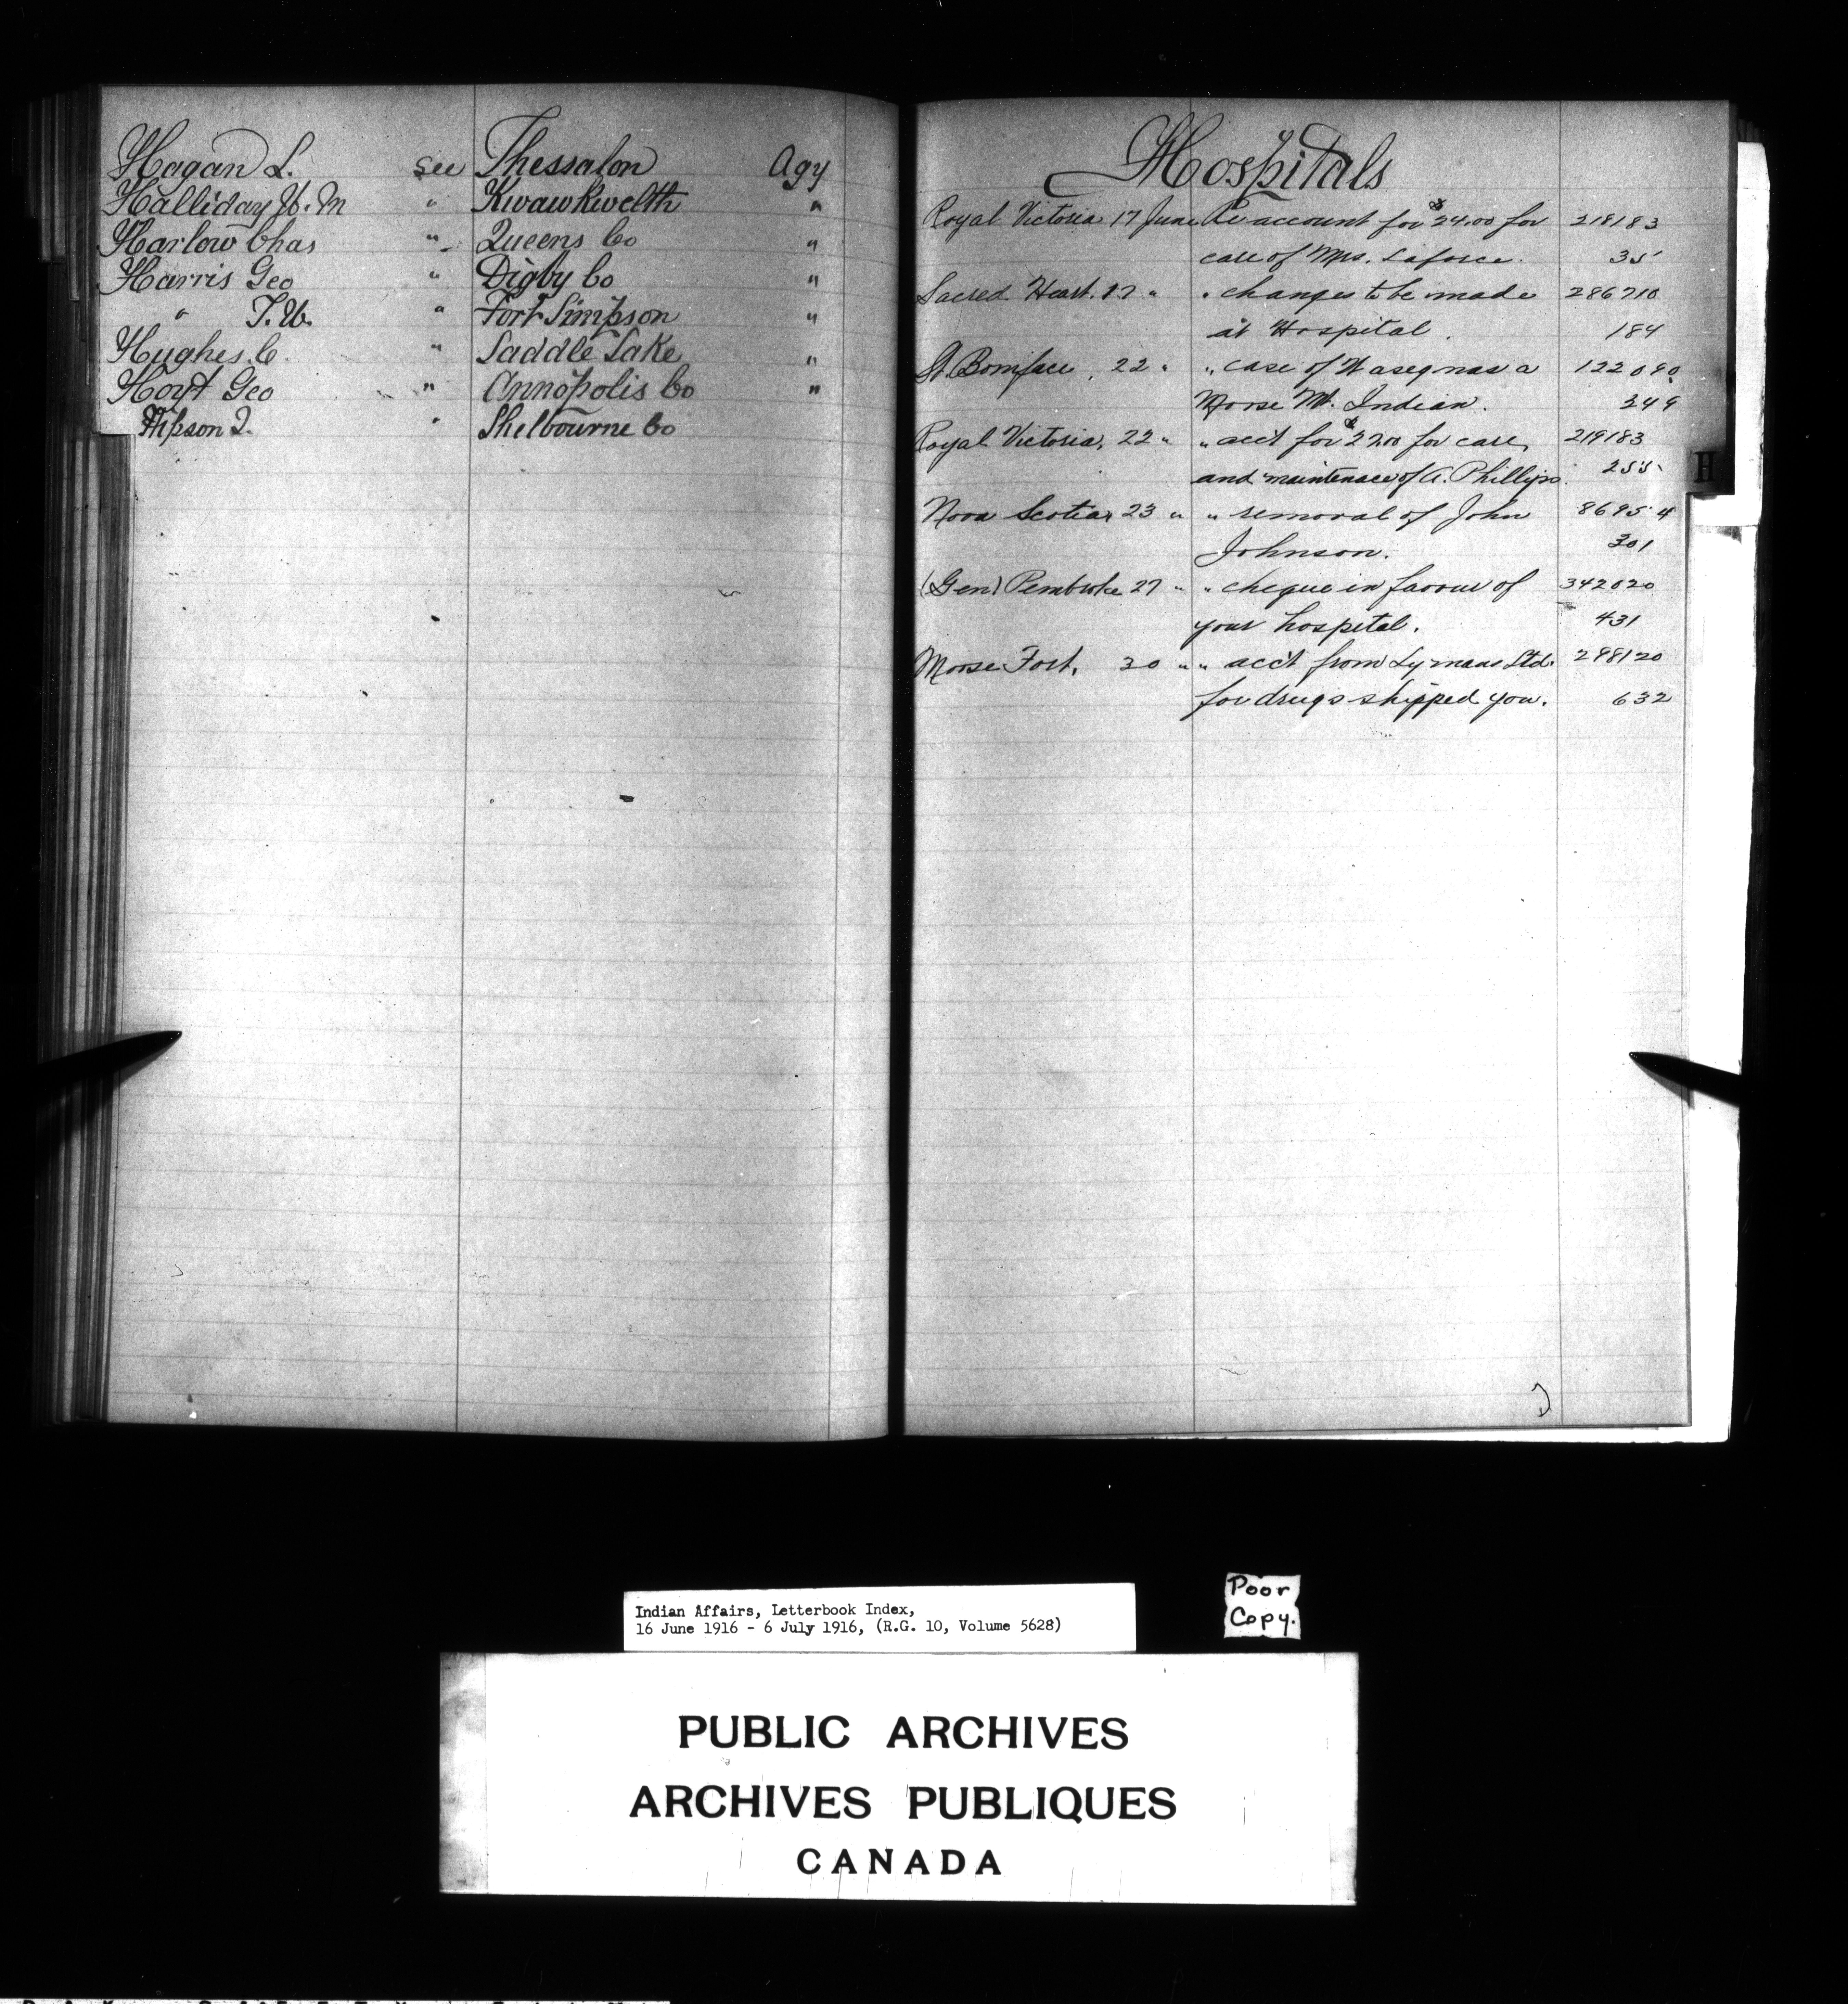 Hagan L. see Thessalon Agy
Halliday W. M " Kwawkwelth "
Harlow Chas " Queens Co "
Harris Geo " Digby Co "
" T. W. " Fort Simpson "
Hughes C. " Saddle Lake "
Hoyt Geo " Annopolis Co "
Hipson J. " Shelbourne Co
Hospitals
Royal Victoria 17 June Re account for $24.00 for 218183
care of Mrs. Laforce. 35
Sacred Heart. 17 " " changes to be made 286710
at Hospital. 184
St. Boniface, 22 " " case of Wasegnas a 122090
Moose Mt. Indian. 249
Royal Victoria, 22 " " acct for $22.00 for care, 219183
and maintenace of A. Phillips. 255
Nova Scotia, 23 " " removal of John 86954
Johnson. 301
(Gen) Pembroke 27 " " cheque in favour of 342020
your hospital. 431
Moose Fort, 30 " " acc't from Lymans Ltd. 298120
for drugs shipped you. 632
H
Indian Affairs, Letterbook Index,
16 June 1916 - 6 July 1916, (R.G. 10, Volume 5628)
Poor
Copy.
PUBLIC ARCHIVES
ARCHIVES PUBLIQUES
CANADA